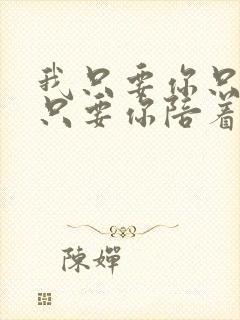 我只要你只
只要你陪着
陳嬋